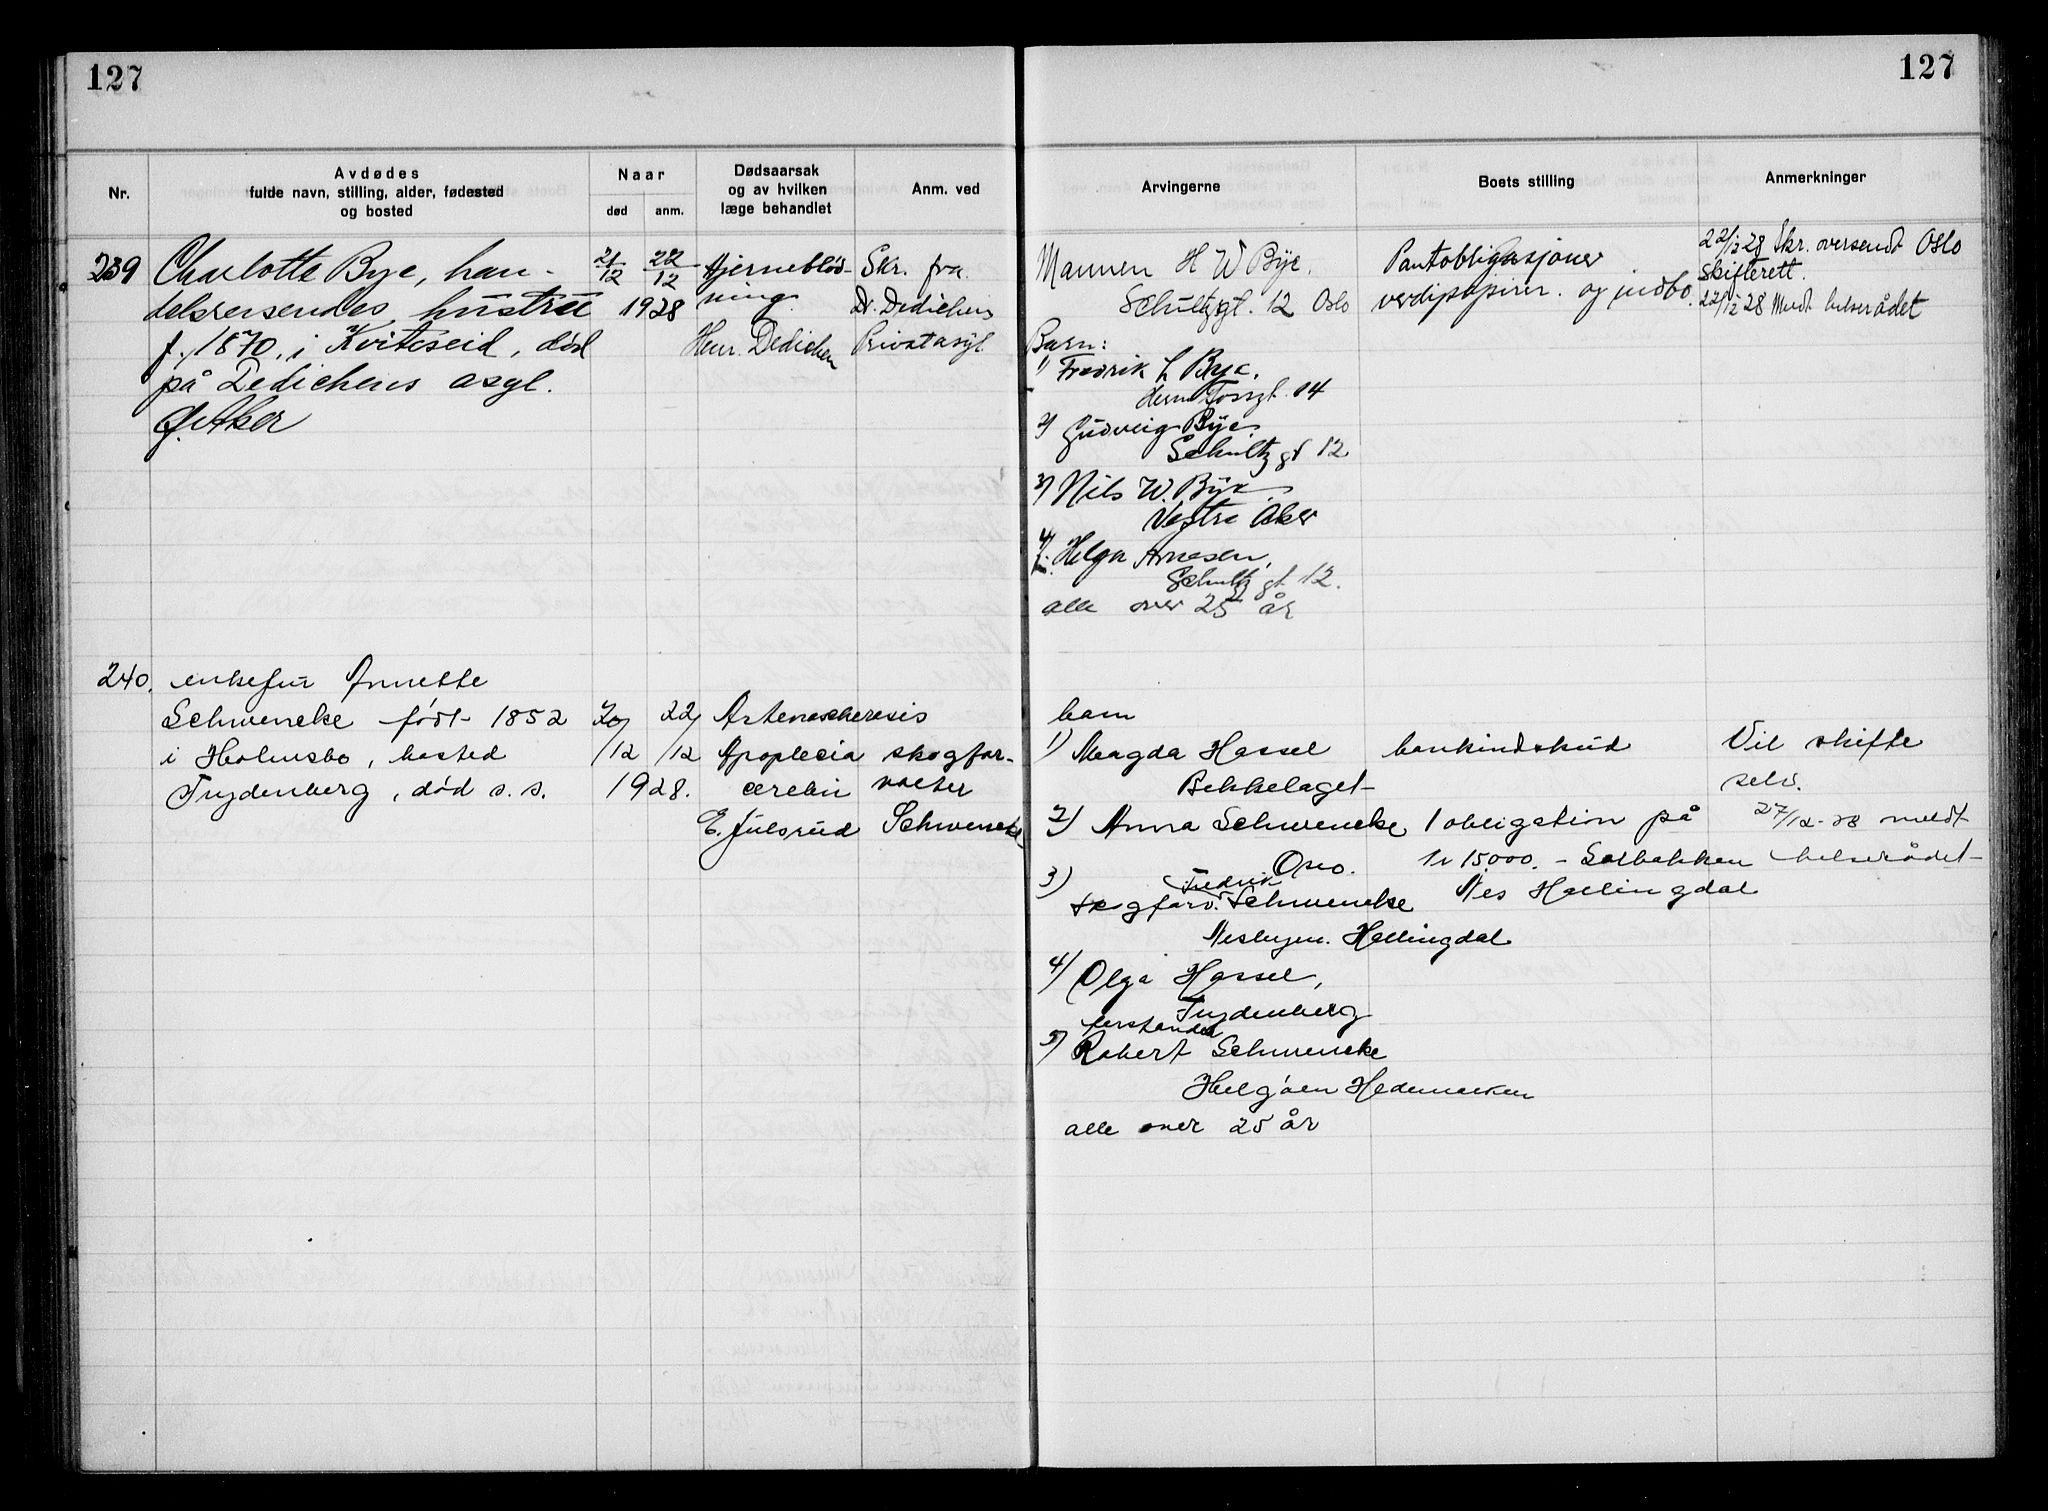 127
127
Nr.
Avdødes
fulde navn, stilling, alder, fødested
og bosted
Naar
død
anm.
Dødsaarsak
og av hvilken
læge behandlet
Anm. ved
Arvingerne
Boets stilling
Anmerkninger
239
Charlotte Bye, han-
delsreisendes hustru
f. 1870, i Kviteseid, død
på Dedichens asyl.
Ø. Aker
21/12
22/12
1928
Hjerneblød-
ning.
Henr. Dedichen
Skr. fra
Dr. Dedichens
Privatasyl
Mannen H W Bye.
Schultzgt. 12 Oslo
Barn:
1) Fredrik L Bye.
Herm Fossgt. 14
2) Gudveig Bye.
Schultz gt 12
3) Nils W. Bye
Vestre Aker
4) Helga Arnesen,
Schultz gt 12.
alle over 25 år
Pantobligasjoner
verdipapirer. og indbo.
22/12 28 Skr. oversendt Oslo
skifterett.
22/12 28 Meldt helserådet
240.
enkefru Annette
Schwencke født 1852
i Holmsbo, bosted
Frydenberg, død s. s.
20/12
22/12
1928.
Arteriosclerosis
Apoplexia
cerebri
E. Julsrud
skogfor-
valter
Schwencke
barn
1) Magda Hassel
Bekkelaget
2) Anna Schwencke
Oslo.
3) Fredrik
skogforv. Schwencke
Nesbyen. Hallingdal
4) Olga Hassel,
Frydenberg
bestander
5) Robert Schwencke
Helgøen Hedemarken
alle over 25 år
bankindskud
1 obligation på
kr 15000. - Solbakken
Nes Hallingdal
Vil skifte
selv.
27/12-28 meldt
helserådet